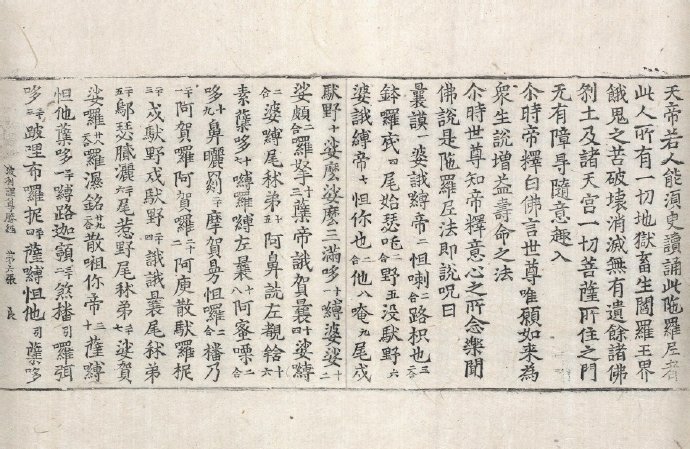 天帝若人能湏㬰讀誦此陁羅尼者
此人所有一切地獄畜生閻羅王界
餓鬼之苦破壞消滅無有遺餘諸佛
刹土及諸天宮一切菩薩所住之門
无有障㝵隨意趣入
尒時帝釋白佛言世尊唯願如来為
衆生說增益壽命之法
尒時世尊知帝釋意心之所念樂聞
佛說是陁羅尼法即說呪曰
曩謨一婆誐縛帝二怛喇二合路枳也三二合
鉢羅二合底四尾始瑟吒二合野五没馱野六
婆誐縛帝七怛你也二合他八唵九尾戍
馱野十娑麽娑麽三滿哆十一縛婆娑十二
娑頗二合羅拏十三蘖帝誐賀曩十四娑縛
二合婆縛尾秫弟十五阿鼻詵左覩𤚥十六
素蘖哆十七縛羅縛左曩十八阿蜜㗚二合
哆十九鼻曬罽二十摩賀母怛囉二合播乃
二十一阿賀羅阿賀羅二十二阿庾散馱羅抳
二十三戍馱野戍馱野二十四誐誐曩尾秫弟
二十五鄔瑟膩灑二十六尾惹野尾秫弟二十七娑賀
娑羅二十八羅濕銘二十九散唨你帝三十薩縛
第六張
怛他蘖哆三十一縛路迦𩕳三十二煞播引囉弭
哆三十三跛理布羅抳三十四薩縛怛他引蘖哆